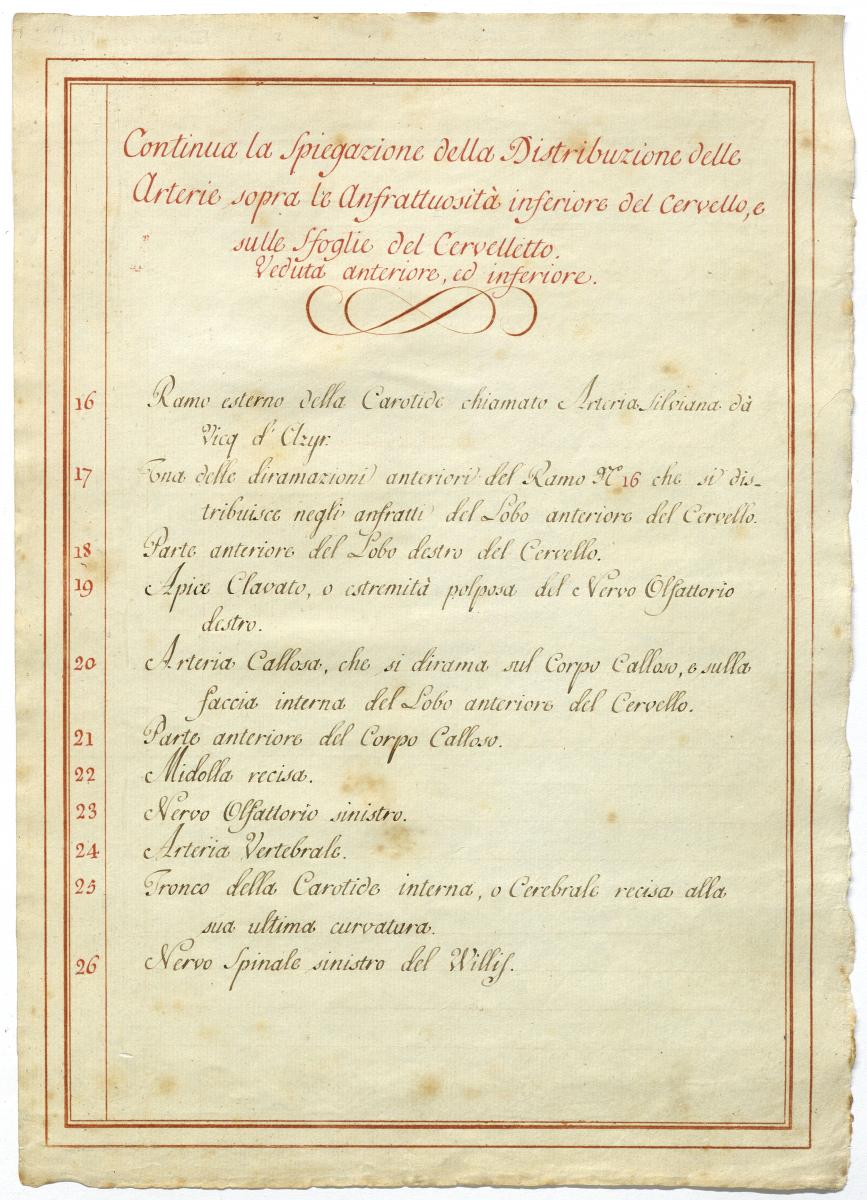 Continua la Spiegazione della Distribuzione delle
Arterie sopra le Anfrattuosità inferiore del Cervello, e
sulle Sfoglie del Cervelletto.
Veduta anteriore, ed inferiore.
16 Ramo esterno della Carotide chiamato Arteria Silviana dà
Vicq d' Azyr.
17 Una delle diramazioni anteriori del Ramo N.º 16 che si dis-
tribuisce negli anfratti del Lobo anteriore del Cervello.
18 Parte anteriore del Lobo destro del Cervello.
19 Apice Clavato, o estremità polposa del Nervo Olfattorio
destro.
20 Arteria Callosa, che si dirama sul Corpo Calloso, e sulla
faccia interna del Lobo anteriore del Cervello.
21 Parte anteriore del Corpo Calloso.
22 Midolla recisa.
23 Nervo Olfattorio sinistro.
24 Arteria Vertebrale.
25 Tronco della Carotide interna, o Cerebrale recisa alla
sua ultima curvatura.
26 Nervo Spinale sinistro del Willis.